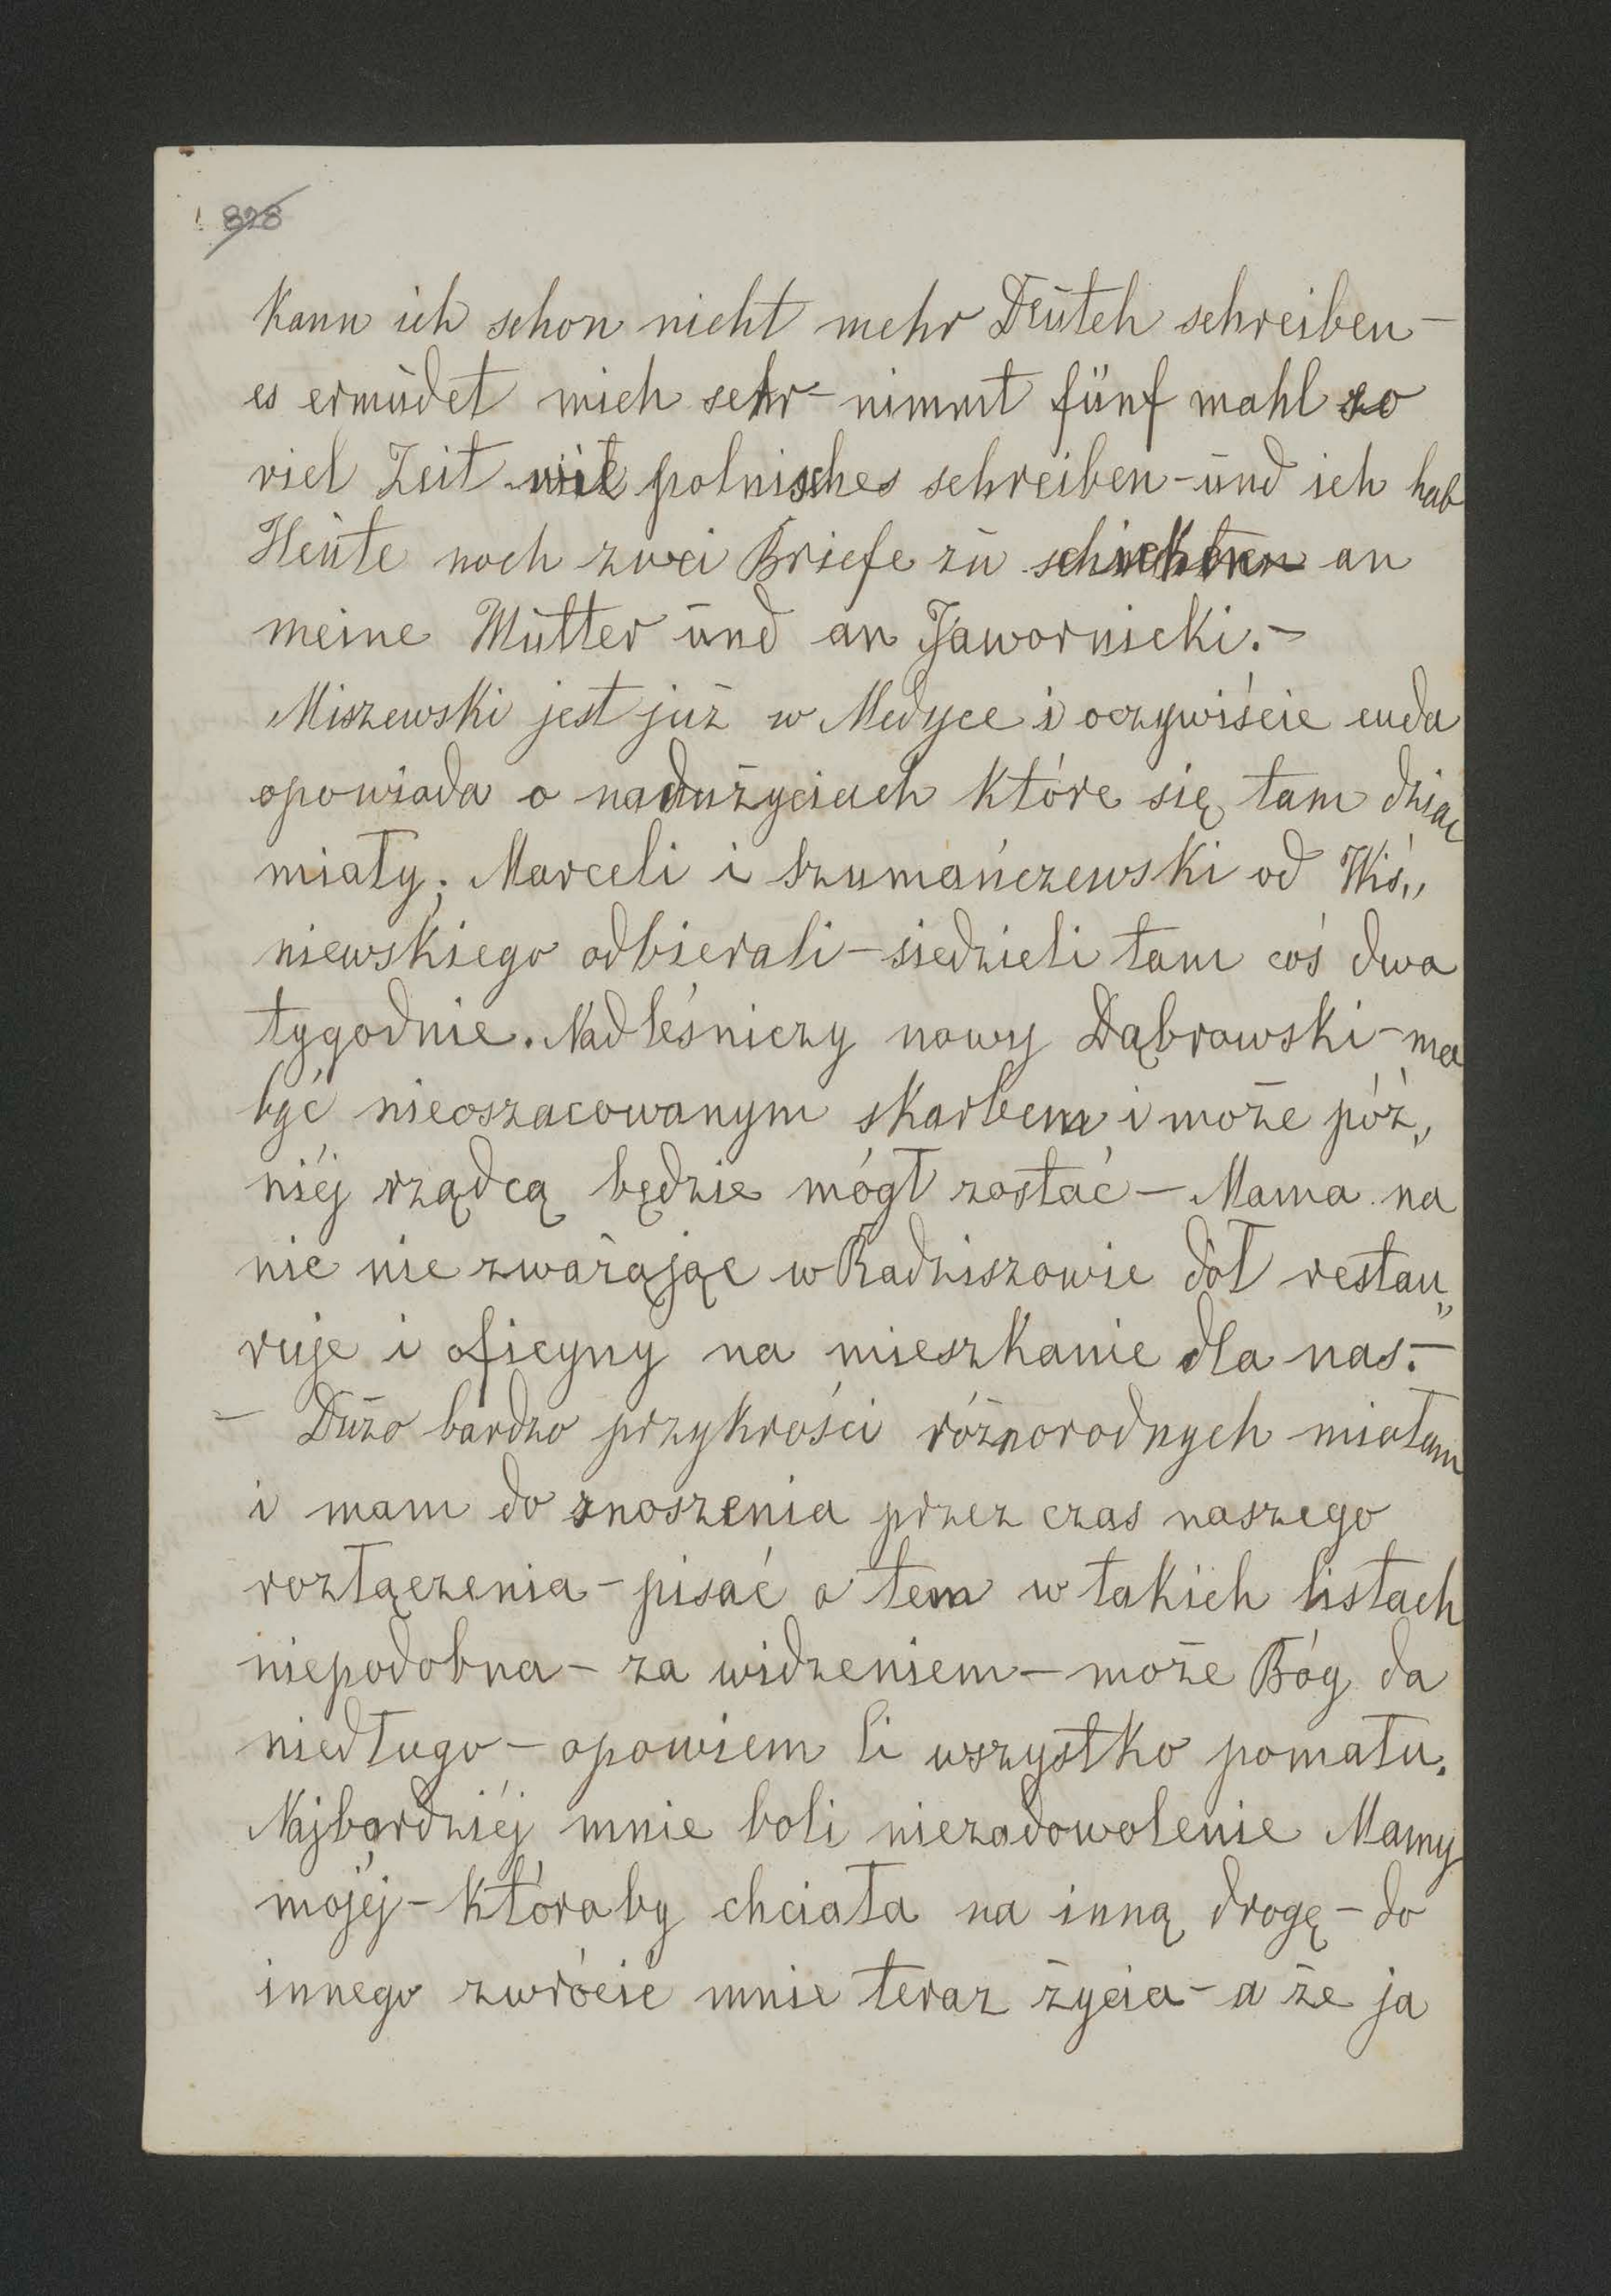 828
kann ich schon nicht mehr Deutch schreiben –
es ermüdet mich sehr – nimmt fünf mahl so
viel Zeit wie polnisches schreiben – und ich hab
Heute noch zwei Briefe zu an
meine Mutter und an Jawornicki. –
Miszewski jest już w Medyce i oczywiście cuda
opowiada o nadużyciach które się tam dziać
miały; Marceli i Szumańczewski od Wiś„
niewskiego odbierali – siedzieli tam coś dwa
tygodnie. Nadleśniczy nowy Dąbrowski – ma
być nieoszacowanym skarbem i może póź„
niéj rządcą będzie mógł zostać – Mama na
nic nie zważając w Radziszowie dół restau„
ruje i oficyny na mieszkanie dla nas. –
– Dużo bardzo przykrości różnorodnych miałam
i mam do znoszenia przez czas naszego
rozłączenia – pisać o tem w takich listach
niepodobna – za widzeniem – może Bóg da
niedługo – opowiem Ci wszystko pomału.
Najbardziéj mnie boli niezadowolenie Mamy
mojéj – któraby chciała na inną drogę – do
innego zwrócić mnie teraz życia – a że ja